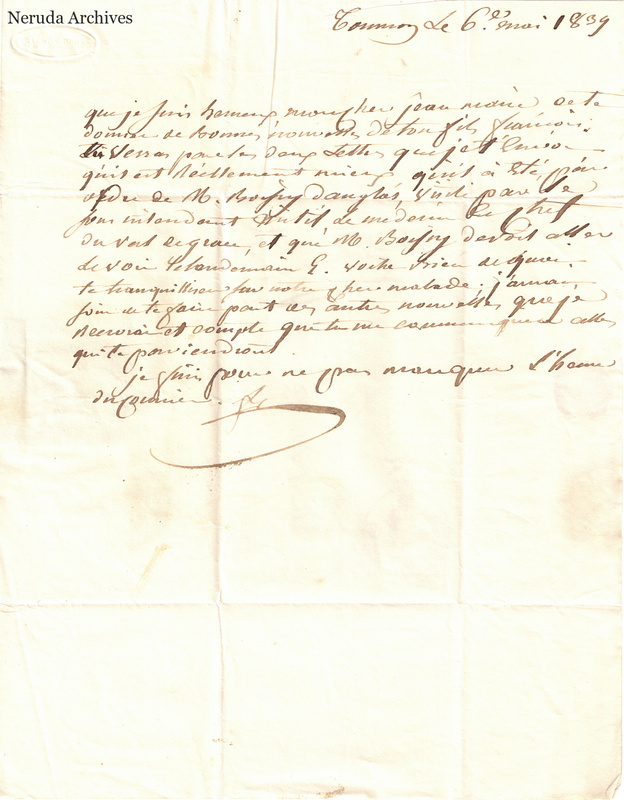 Neruda Archives
Tournon Le 6 mai 1839
que je suis heureux mon cher jean marie de te
donner de bonnes nouvelles de ton fils françois.
tu verras par les deux Lettres que je t'envoie
qu'il est réellement mieux qu'il à été par
ordre de M. Boissy d'anglas, visité par le
sous intendant de médecin en chef
du val de grace, et que M. Boissy devait aller
le voir le lendemain
te tranquilliser sur notre cher malade. j'aurai
soin de te faire part des autres nouvelles que je
recevrai et compte que tu me communiquera celles
qui te parviendront
je finis pour ne pas manquer L'heure
du courrier.